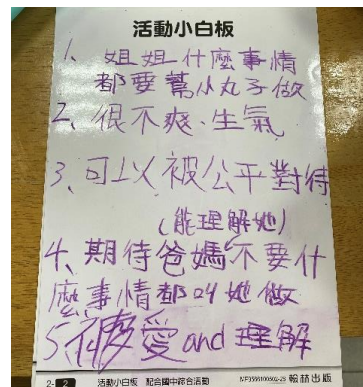 活動小白板
1、姐姐什麼事情
都要幫小丸子做
2、很不爽、生氣
3、可以被公平對待
(能理解她)
4、期待爸媽不要什
麼事情都叫她做
5、被愛and理解
2-2 活動小白板 配合國中綜合活動 翰林出版